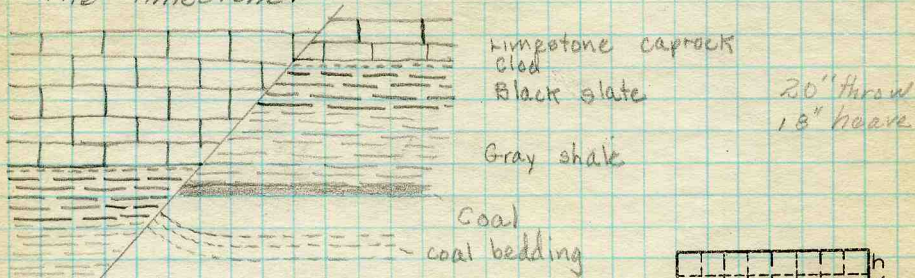 the limestone.
Limestone caprock
Clod
Black slate
20" throw
18" heave
Gray shale
Coal
coal bedding
h